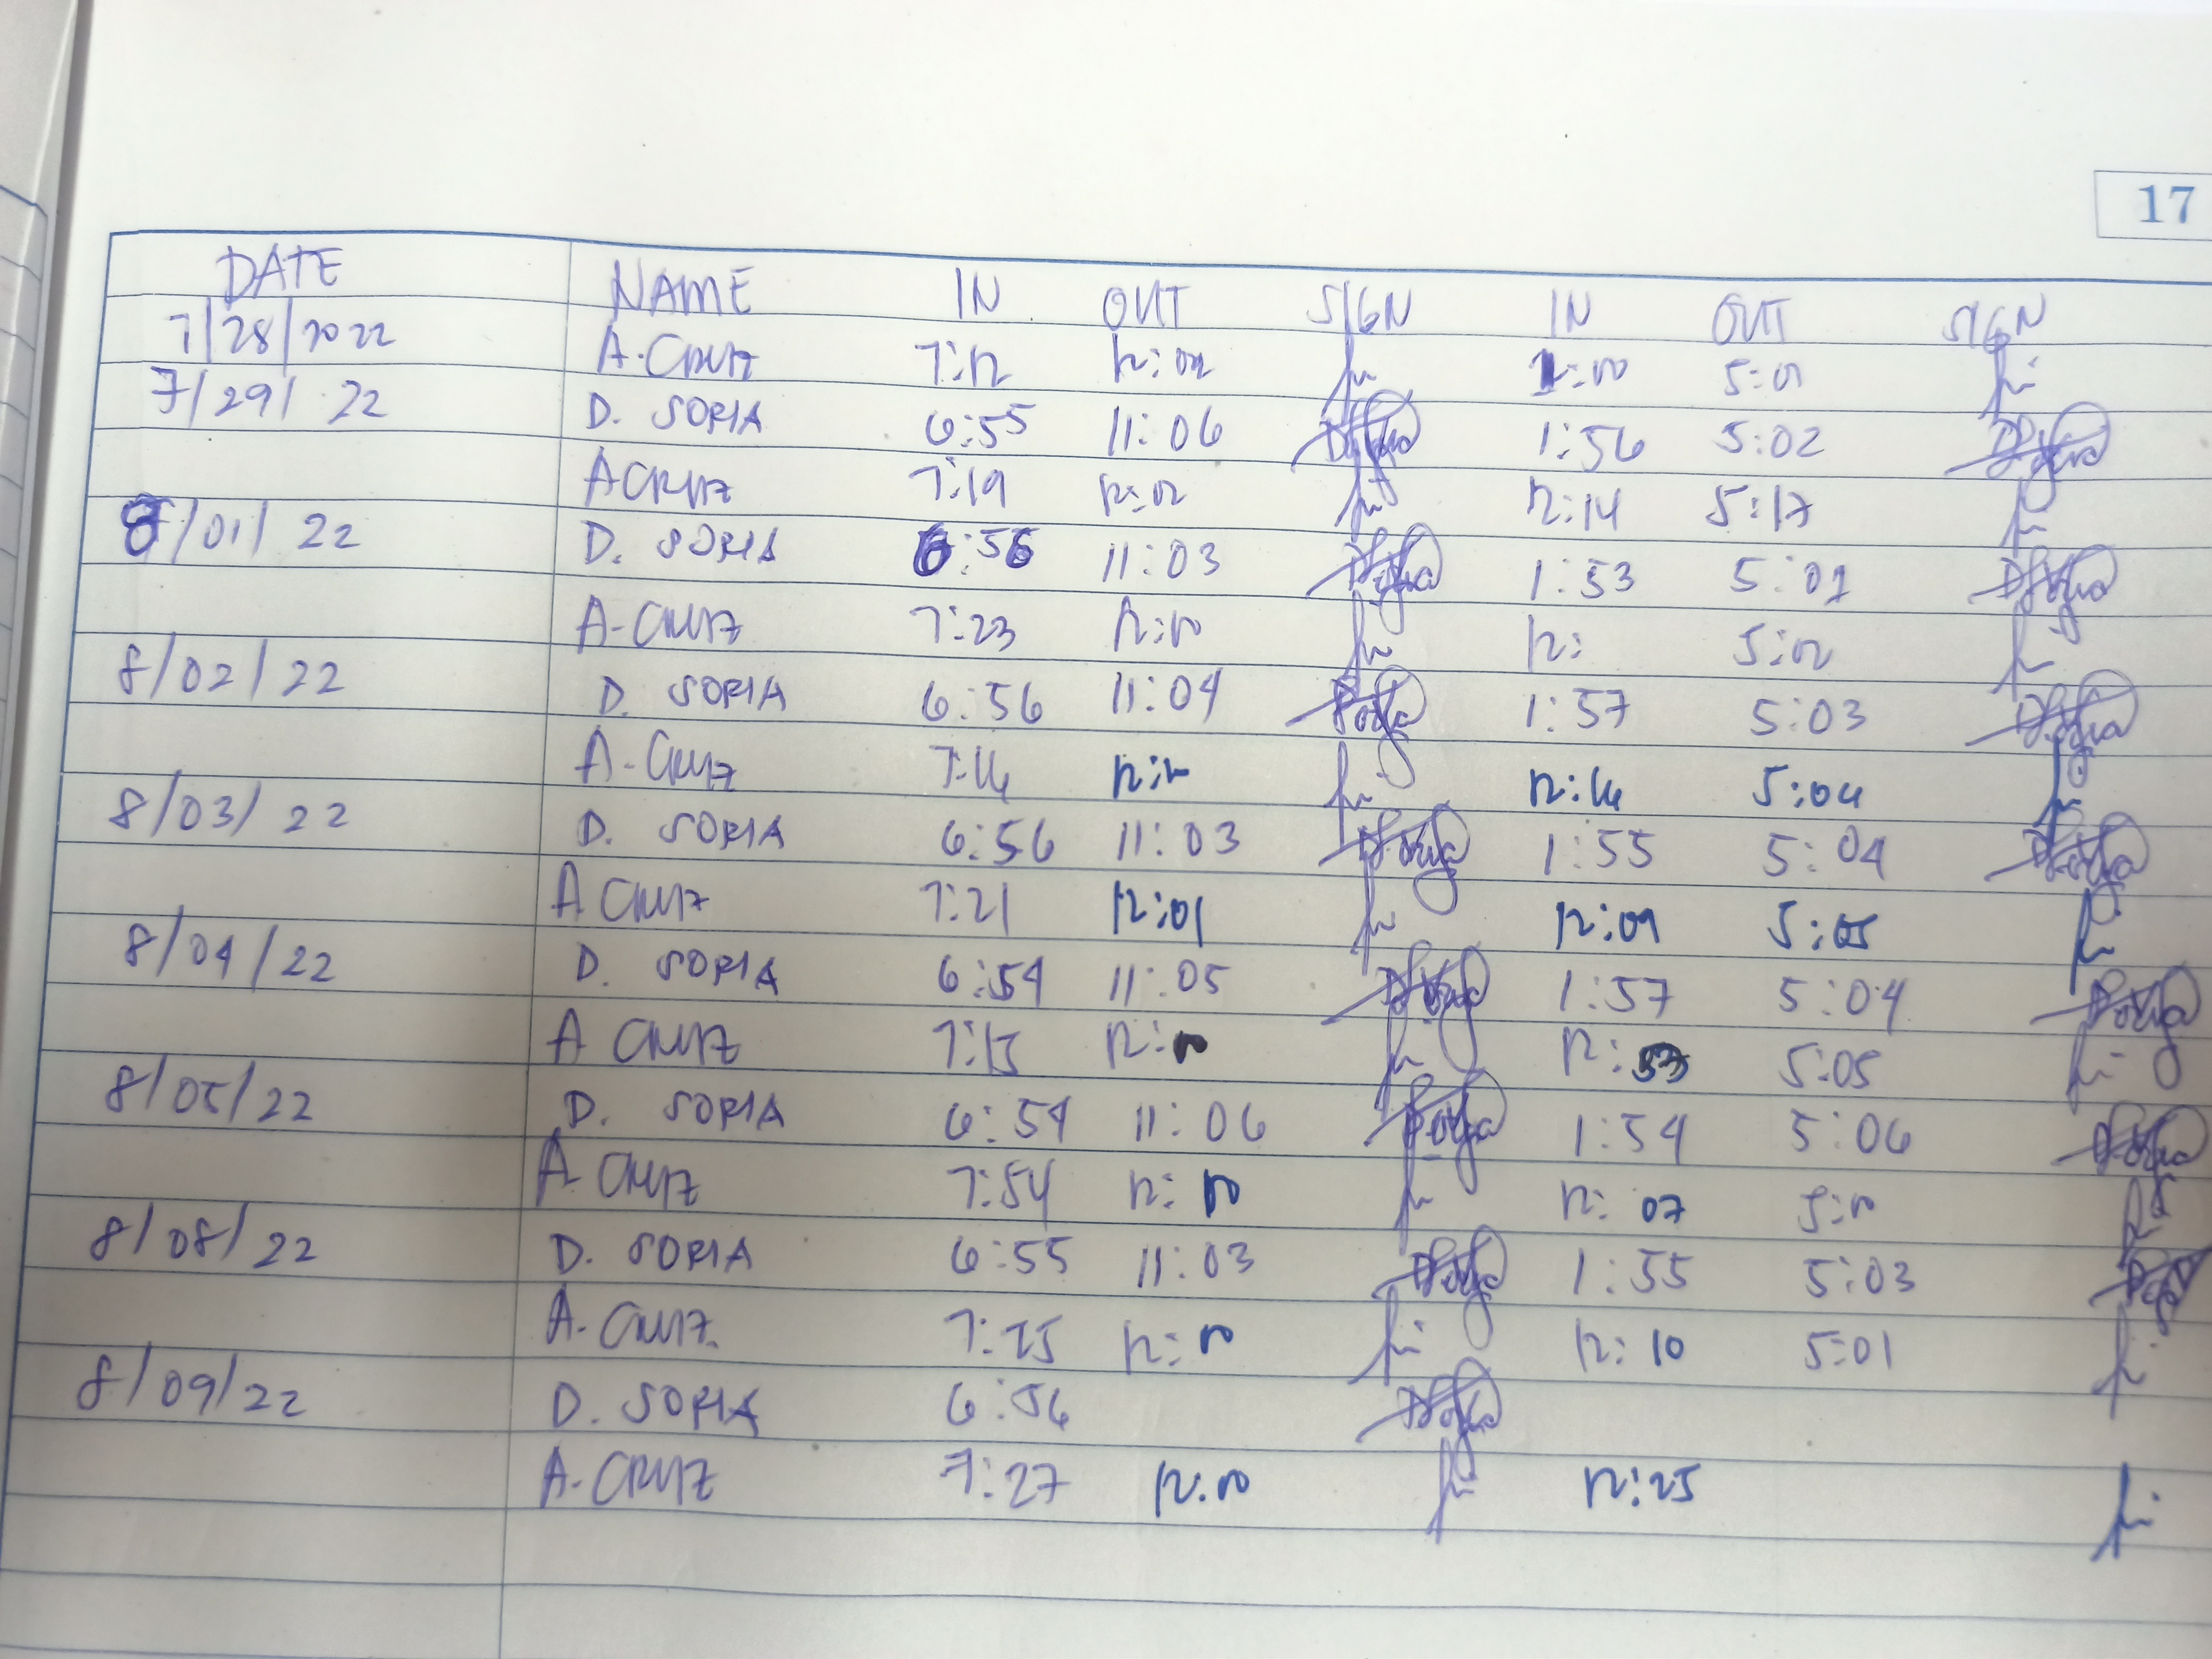 17
DATE NAME IN OUT SIGN IN OUT SIGN
7/28/2022 A. CRUZ 7:12 12:02 1:00 5:01
7/29/ 22 D. SORIA 6:55 11:06 1:56 5:02
A CRUZ 7:19 12:02 12:14 5:17
8/01/ 22 D. SORIA 6:56 11:03 1:53 5:01
A-CRUZ 7:23 12:00 12: 5:02
8/02/22 D. SORIA 6:56 11:04 1:57 5:03
A-CRUZ 7:16 12:16 5:04
8/03/ 22 D. SORIA 6:56 11:03 1:55 5:04
A CRUZ 7:21 12:01 12:09 5:05
8/04/22 D. SORIA 6:54 11:05 1:57 5:04
A CRUZ 7:15 12:00 12:53 5:05
8/05/22 D. SORIA 6:54 11:06 1:54 5:06
A CRUZ 7:54 12:00 12:07 5:00
8/08/22 D. SORIA 6:55 11:03 1:55 5:03
A. CRUZ 7:25 12:00 12:10 5:01
8/09/22 D. SORIA 6:56
A. CRUZ 7:27 12:00 12:25